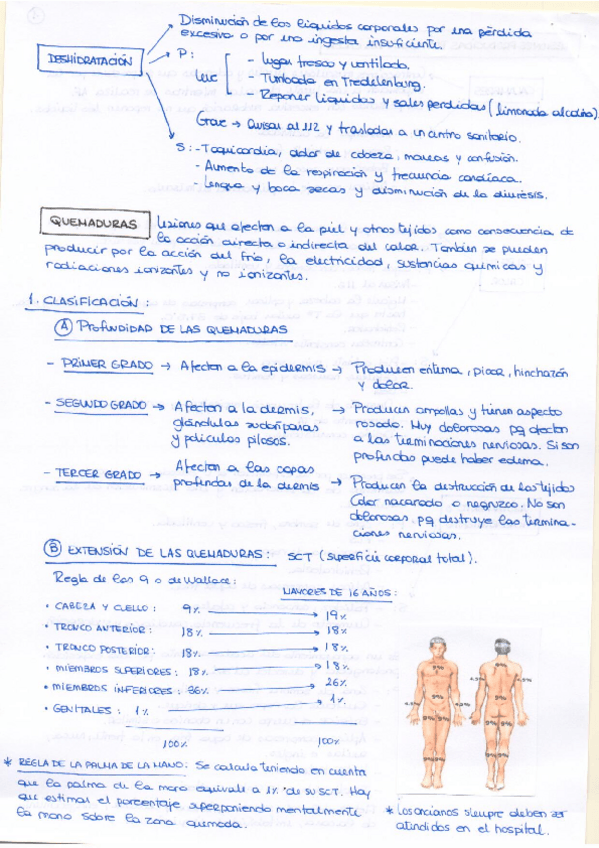 Disminución de los líquidos corporales por una pérdida
excesiva o por una ingesta insuficiente.
DESHIDRATACIÓN
P:
Leve
- Lugar fresco y ventilado.
- Tumbada en Tredelenburg.
- Reponer líquidos y sales perdidas (limonada alcalina).
Grave → Avisar al 112 y trasladas a un centro sanitario.
S: - Taquicardia, dolor de cabeza, mareas y confusión.
- Aumento de la respiración y frecuencia cardíaca.
- Lengua y boca secas y disminución de la diuresis.
QUEMADURAS
Lesiones que afectan a la piel y otros tejidos como consecuencia de
la acción directa o indirecta del calor. Tambien se pueden
producir por la acción del frío, la electricidad, sustancias químicas y
radiaciones ionizantes y no ionizantes.
1. CLASIFICACIÓN:
A PROFUNDIDAD DE LAS QUEMADURAS
- PRIMER GRADO → Afectan a la epidermis → Producen eritema, picor, hinchazón
y dolor.
- SEGUNDO GRADO → Afectan a la dermis, → Producen ampollas y tienen aspecto
glándulas sudoríparas rosado. Muy dolorosas pq afectan
y folículos pilosos. a las terminaciones nerviosas. Si son
profundas puede haber edema.
- TERCER GRADO → Afectan a las capas
profundas de la dermis → Producen la destrucción de los tejidos
Color nacarado o negruzco. No son
dolorosas pq destruye las termina-
ciones nerviosas.
B EXTENSIÓN DE LAS QUEMADURAS: SCT (superficie corporal total).
Regla de los 9 o de Wallace:
MAYORES DE 16 AÑOS:
• CABEZA Y CUELLO: 9% → 19%
• TRONCO ANTERIOR: 18% → 18%
• TRONCO POSTERIOR: 18% → 18%
• MIEMBROS SUPERIORES: 18% → 18%
• MIEMBROS INFERIORES: 36% → 26%
• GENITALES: 1% → 1%
100% 100%
* REGLA DE LA PALMA DE LA MANO: Se calcula teniendo en cuenta
que la palma de la mano equivale a 1% de su SCT. Hay
que estimar el porcentaje, superponiendo mentalmente
la mano sobre la zona quemada.
* Los ancianos siempre deben ser
atendidos en el hospital.